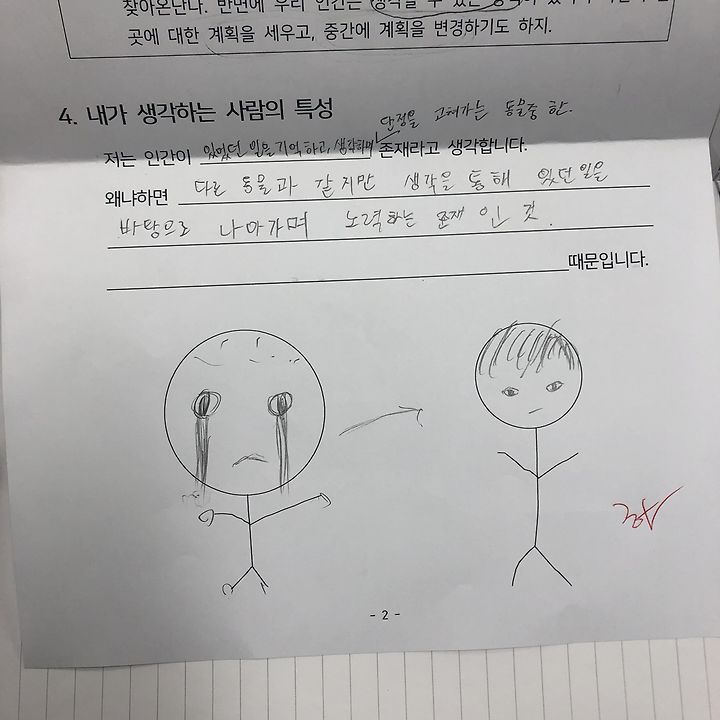 찾아온난다. 반면에 우리 인간은 생각할 수 있는
곳에 대한 계획을 세우고, 중간에 계획을 변경하기도 하지.
4. 내가 생각하는 사람의 특성
단점을 고쳐가는 동물중 한.
저는 인간이 있었던 일을 기억하고, 생각하며 존재라고 생각합니다.
왜냐하면 다른 동물과 같지만 생각을 통해 있던 일을
바탕으로 나아가며 노력하는 존재 인 것.
때문입니다.
- 2 -